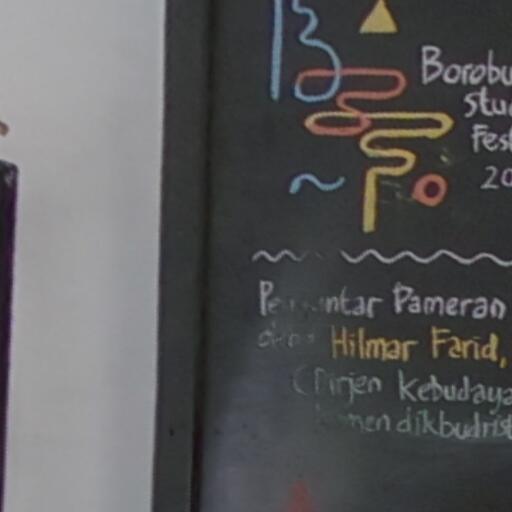 Borobu
stu
Fest
20
Pengantar Pameran
oleh: Hilmar Farid,
(Dirjen Kebudaya
kemendikbudrist